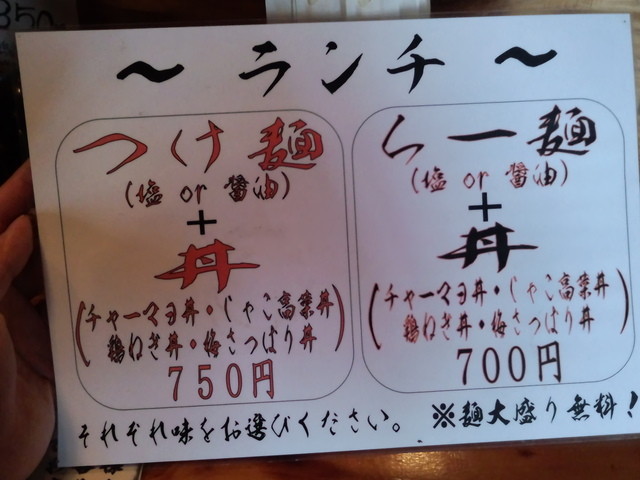 〜 ランチ 〜
つけ麺
(塩 or 醤油)
+
丼
(チャーマヨ丼・じゃこ高菜丼
鶏ねぎ丼・梅さっぱり丼)
750円
らー麺
(塩 or 醤油)
+
丼
(チャーマヨ丼・じゃこ高菜丼
鶏ねぎ丼・梅さっぱり丼)
700円
それぞれ味をお選びください。
※麺大盛り無料！
850